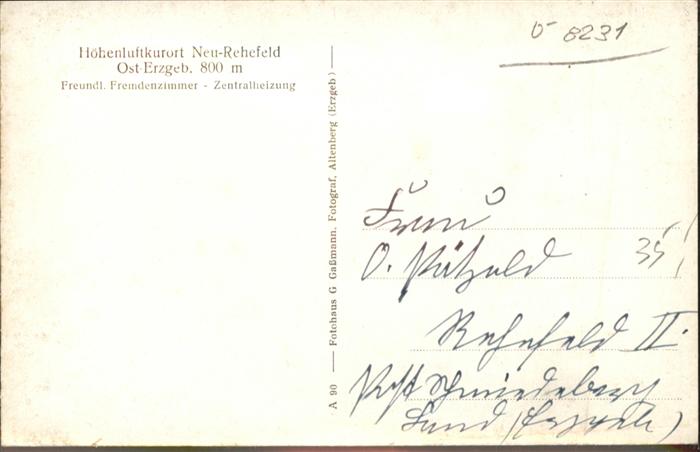 Höhenluftkurort Neu-Rehefeld
Ost-Erzgeb. 800 m
Freundl. Fremdenzimmer - Zentralheizung
A 90 — Fotohaus G Gaßmann, Fotograf, Altenberg (Erzgeb) —
8231
Frau
O. Pätzold
35
Rehefeld II.
Post Schmiedeberg
Land